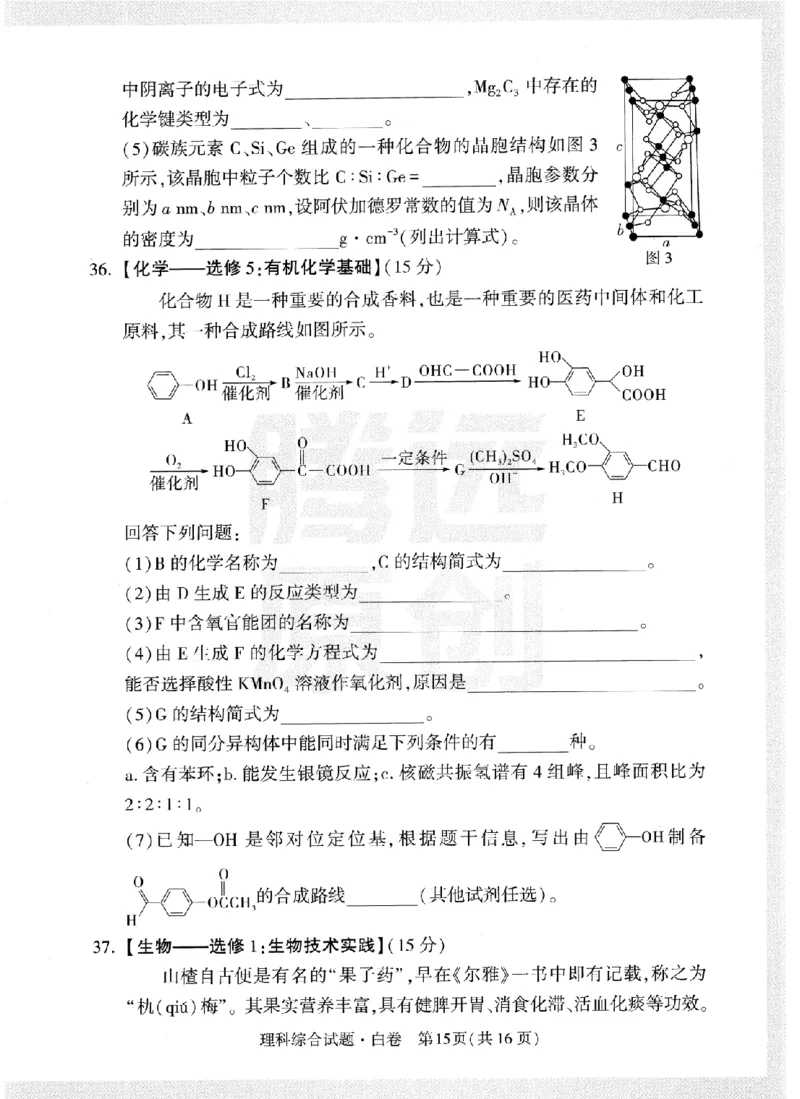 中阴离子的电子式为____________,Mg₂C₃ 中存在的
化学键类型为______、______。
(5)碳族元素 C、Si、Ge 组成的一种化合物的晶胞结构如图 3
所示,该晶胞中粒子个数比 C∶Si∶Ge=______,晶胞参数分
别为 a nm、b nm、c nm,设阿伏加德罗常数的值为 N_A,则该晶体
的密度为____________g·cm⁻³(列出计算式)。
c
b
a
图 3
36.【化学——选修 5:有机化学基础】(15 分)
化合物 H 是一种重要的合成香料,也是一种重要的医药中间体和化工
原料,其一种合成路线如图所示。
—OH Cl₂ 催化剂 B NaOH 催化剂 C H⁺ D OHC—COOH HO HO OH COOH
A E
O₂ 催化剂 HO HO O C—COOH 一定条件 G (CH₃)₂SO₄ OH⁻ H₃CO H₃CO —CHO
F H
回答下列问题:
(1)B 的化学名称为________,C 的结构简式为____________。
(2)由 D 生成 E 的反应类型为____________。
(3)F 中含氧官能团的名称为________________________。
(4)由 E 生成 F 的化学方程式为________________________,
能否选择酸性 KMnO₄ 溶液作氧化剂,原因是__________________。
(5)G 的结构简式为____________。
(6)G 的同分异构体中能同时满足下列条件的有______种。
a. 含有苯环;b. 能发生银镜反应;c. 核磁共振氢谱有 4 组峰,且峰面积比为
2∶2∶1∶1。
(7)已知—OH 是邻对位定位基,根据题干信息,写出由 —OH制备
O H O OCCH₃的合成路线______(其他试剂任选)。
37.【生物——选修 1:生物技术实践】(15 分)
山楂自古便是有名的“果子药”,早在《尔雅》一书中即有记载,称之为
“朹(qiú)梅”。其果实营养丰富,具有健脾开胃、消食化滞、活血化痰等功效。
理科综合试题·白卷 第15页(共 16 页)
腾远
原创